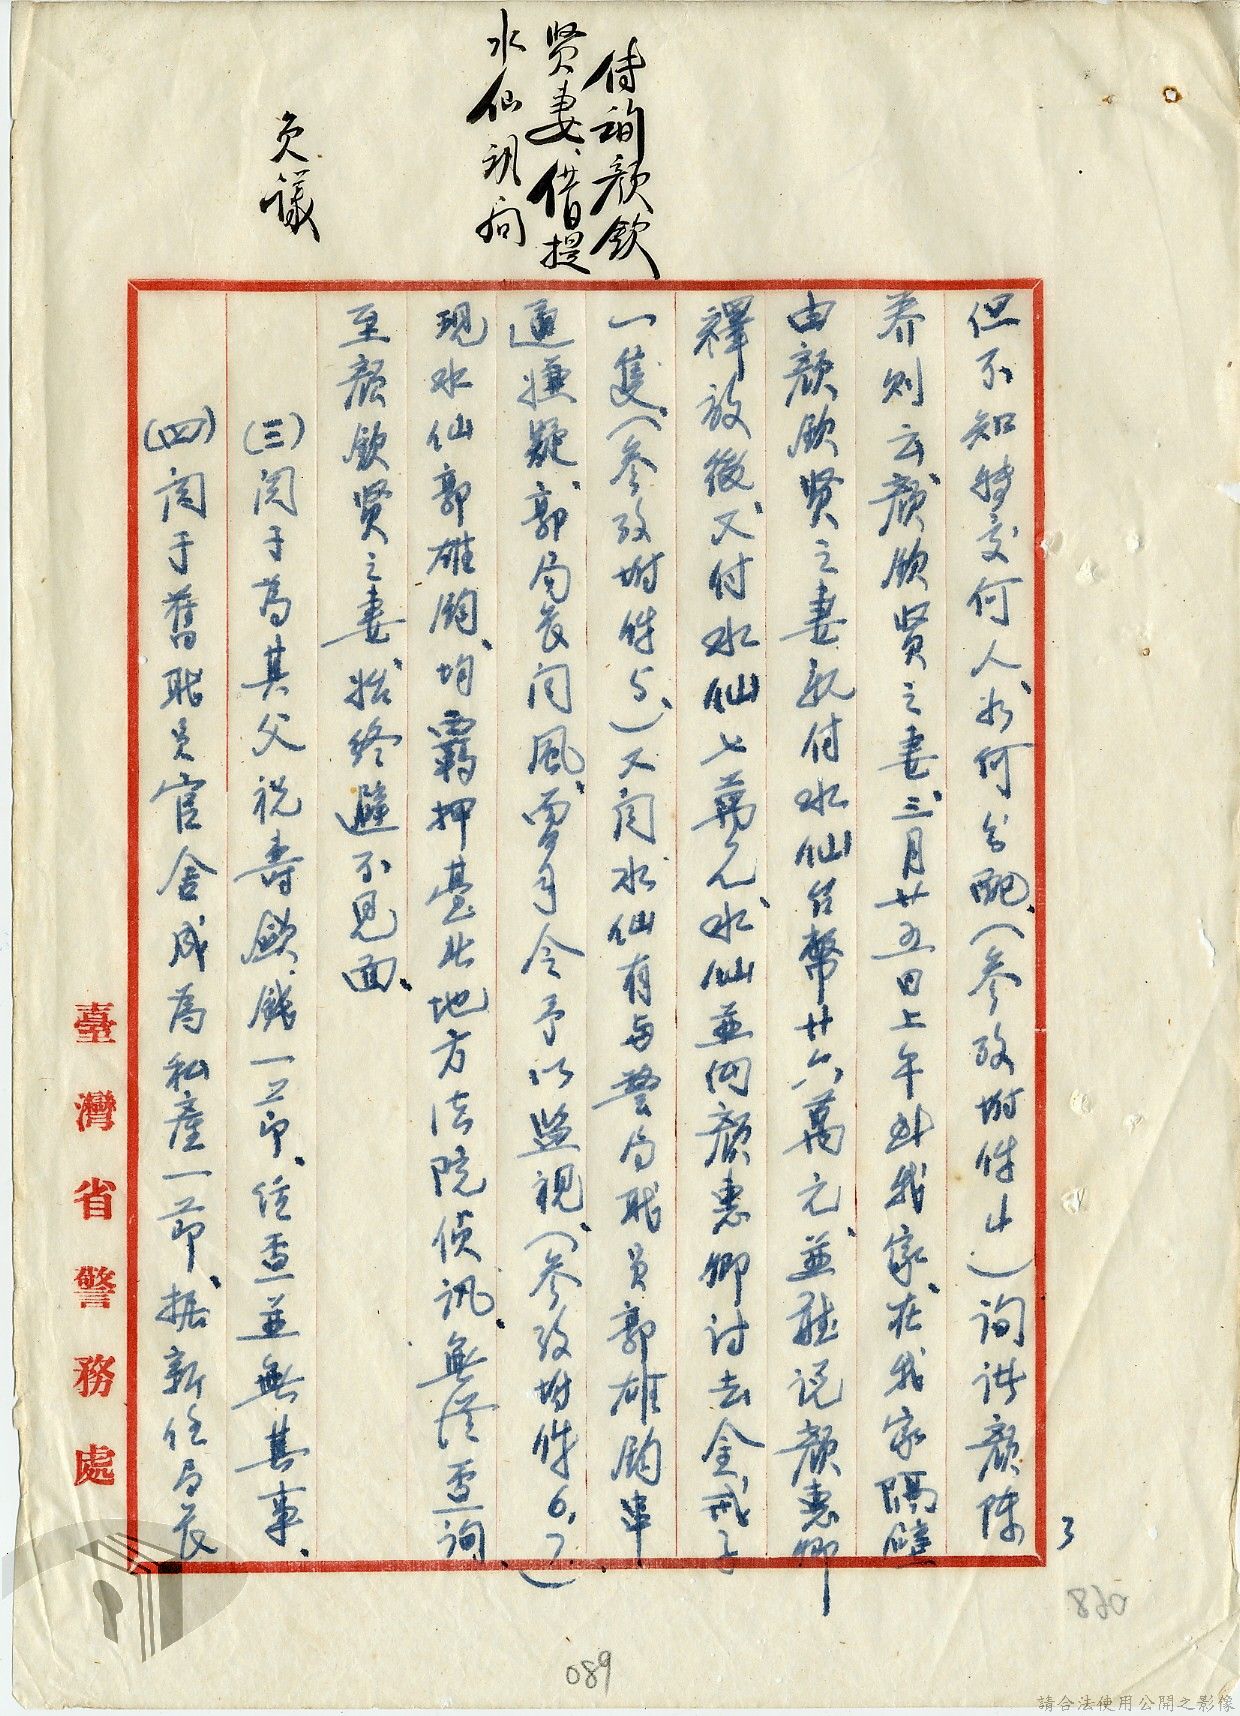 傳詢顏欽
賢妻、借提
水仙訊問
免議
但不知轉交何人、如何分配、(參攷附件4)詢訊顏陳
養則云、顏欽賢之妻、三月廿五日上午到我家、在我家隔壁
由顏欽賢之妻親付水仙台幣廿六萬元、並聽說顏惠卿
釋放後、又付水仙七萬元、水仙並向顏惠卿討去金戒子
一隻、(參攷附件5、)又問水仙有與警局職員郭雄鈞串
通嫌疑、郭局長聞風、曾手令予以監視、(參攷附件6.7.)
現水仙郭雄鈞、均羈押臺北地方法院偵訊、無從查詢、
至顏欽賢之妻、始終避不見面、
(三)關于為其父祝壽斂錢一節、經查並無其事、
(四)關于舊職員官舍成為私產一節、據新任局長
臺灣省警務處
3
860
089
請合法使用公開之影像